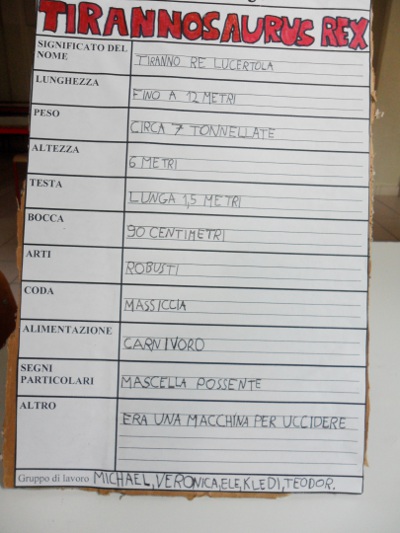 TIRANNOSAURUS REX
SIGNIFICATO DEL NOME TIRANNO RE LUCERTOLA
LUNGHEZZA FINO A 12 METRI
PESO CIRCA 7 TONNELLATE
ALTEZZA 6 METRI
TESTA LUNGA 1,5 METRI
BOCCA 90 CENTIMETRI
ARTI ROBUSTI
CODA MASSICCIA
ALIMENTAZIONE CARNIVORO
SEGNI PARTICOLARI MASCELLA POSSENTE
ALTRO ERA UNA MACCHINA PER UCCIDERE
Gruppo di lavoro MICHAEL, VERONICA, ELE, KLEDI, TEODOR.